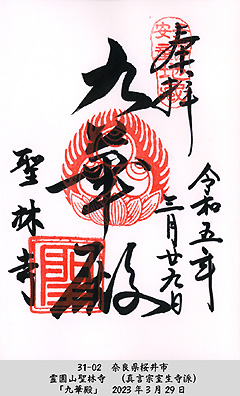 奉拝
九華殿
令和五年
三月廿九日
聖林寺
31-02 奈良県桜井市
霊園山聖林寺 (真言宗室生寺派)
「九華殿」 2023年3月29日